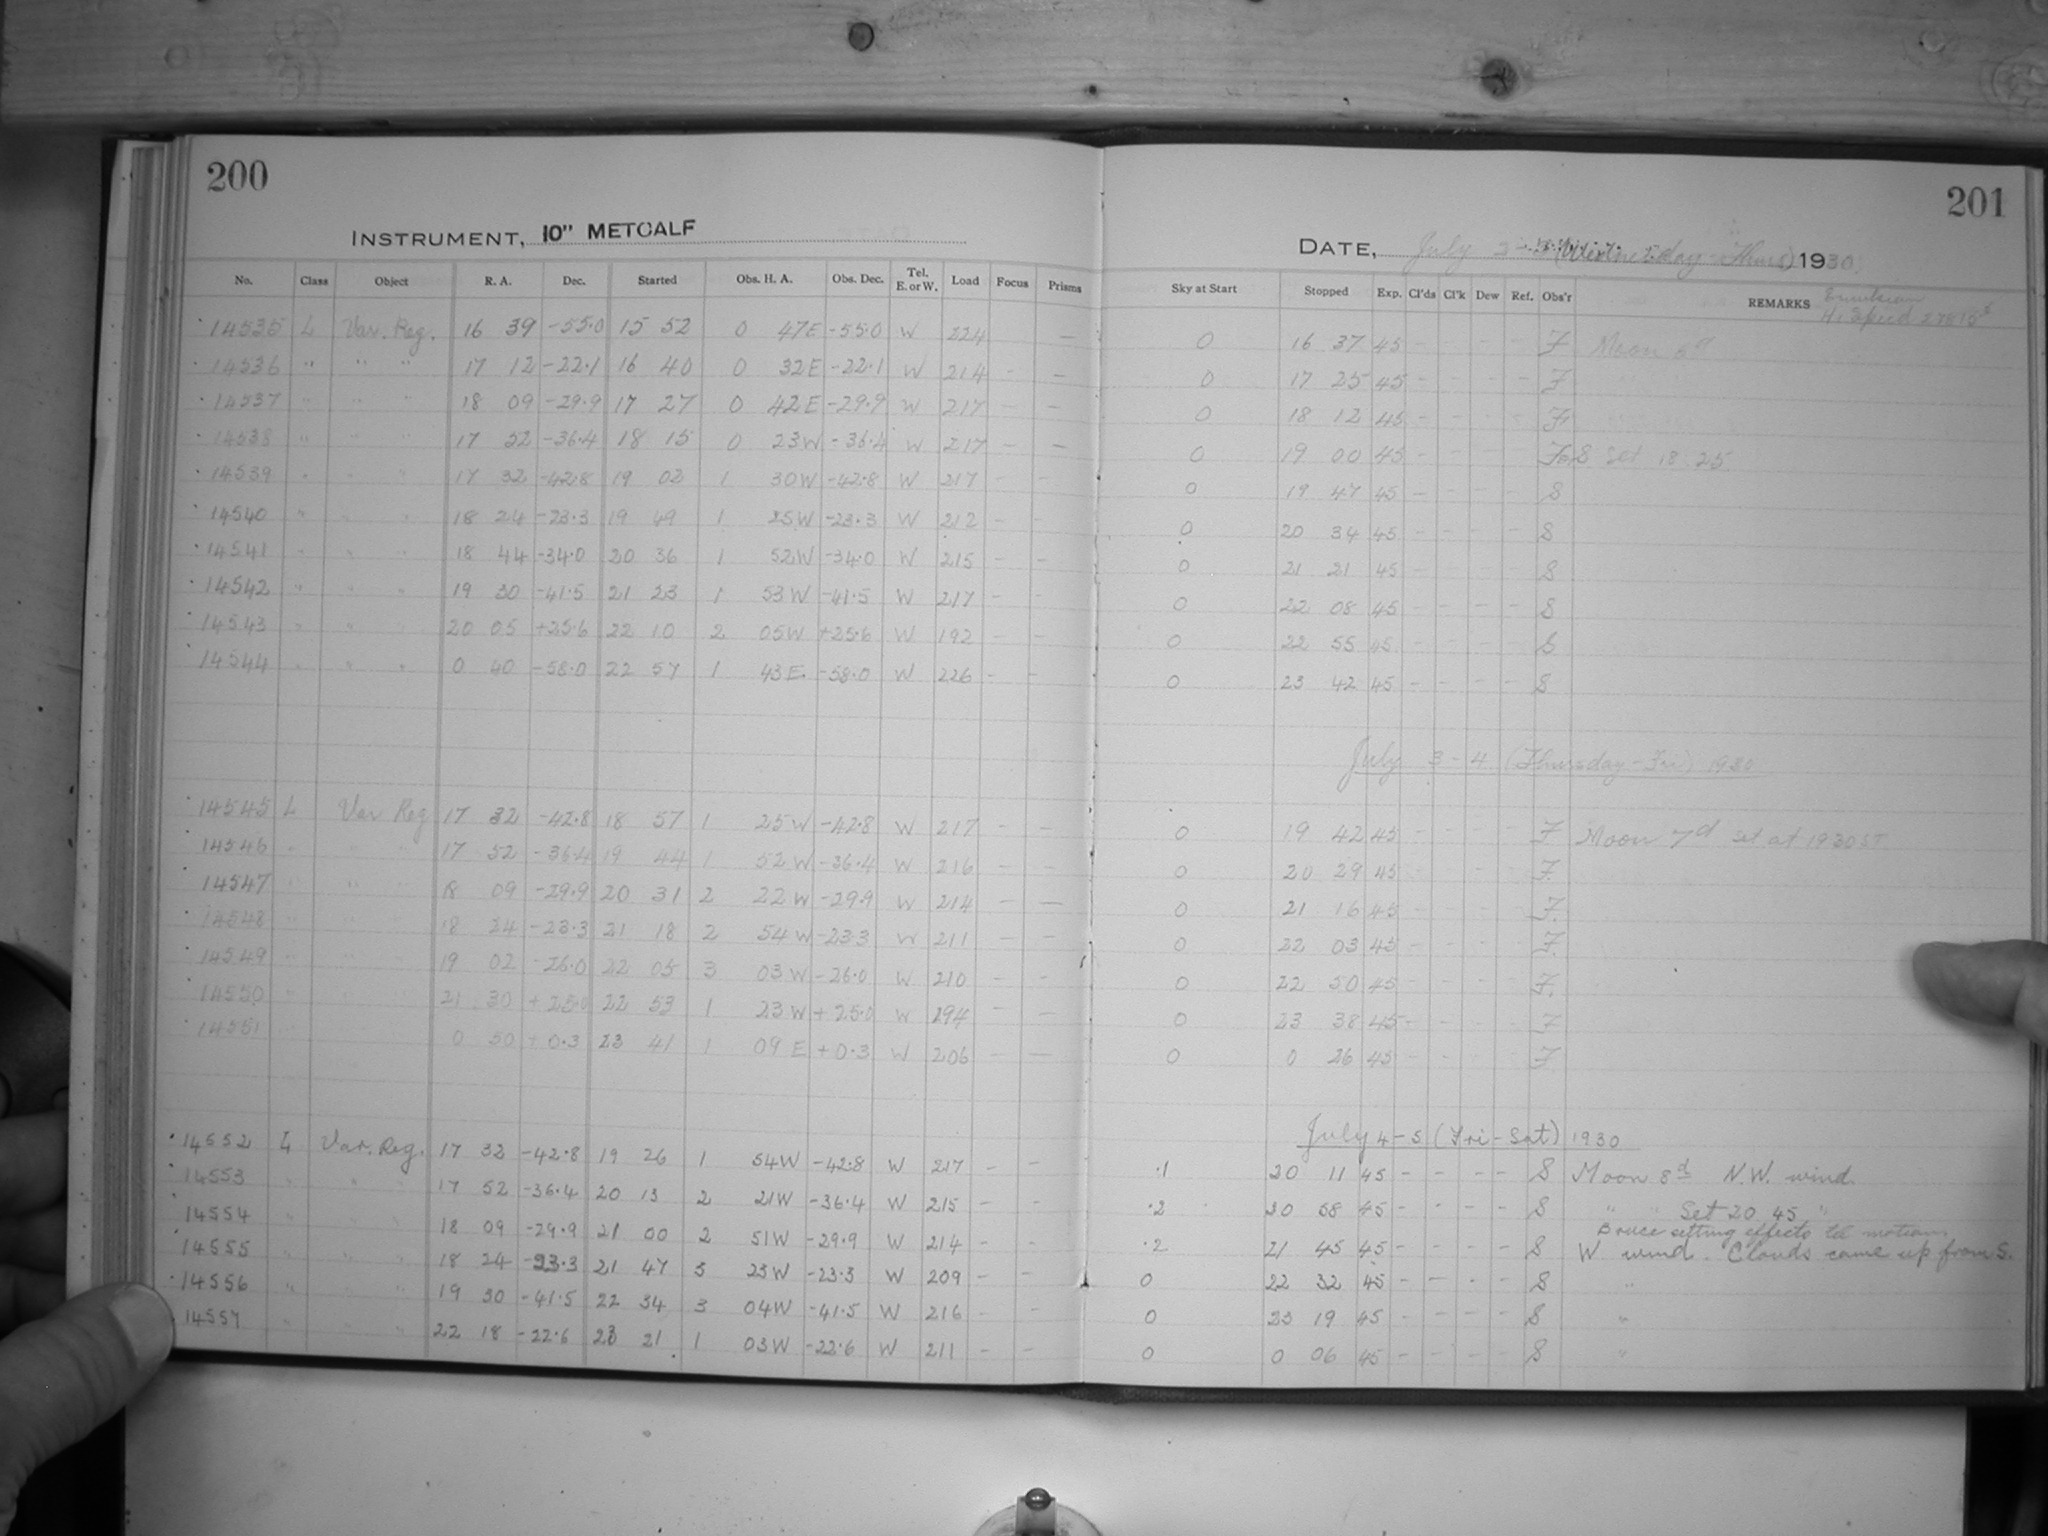 200
INSTRUMENT, 10" METCALF
No. Class Object R. A. Dec. Started Obs. H. A. Obs. Dec. Tel. E. or W. Load Focus Prisms
14535 L Var. Reg. 16 39 -55.0 15 52 0 47E -55.0 W 224 —
14536 " " " 17 12 -22.1 16 40 0 32E -22.1 W 214 - —
14537 " " " 18 09 -29.9 17 27 0 42E -29.9 W 217 — —
14538 " " " 17 52 -36.4 18 15 0 23W -36.4 W 217 — —
14539 " " " 17 32 -42.8 19 02 1 30W -42.8 W 217 - -
14540 " " " 18 24 -23.3 19 49 1 25W -23.3 W 212 - -
14541 " " " 18 44 -34.0 20 36 1 52W -34.0 W 215 - -
14542 " " " 19 30 -41.5 21 23 1 53W -41.5 W 217 - -
14543 " " " 20 05 +25.6 22 10 2 05W +25.6 W 192 - -
14544 " " " 0 40 -58.0 22 57 1 43E -58.0 W 226 - -
14545 L Var Reg 17 32 -42.8 18 57 1 25W -42.8 W 217 - -
14546 " " " 17 52 -36.4 19 44 1 52W -36.4 W 216 - -
14547 " " " 18 09 -29.9 20 31 2 22W -29.9 W 214 — —
14548 " " " 18 24 -23.3 21 18 2 54W -23.3 W 211 - -
14549 " " " 19 02 -26.0 22 05 3 03W -26.0 W 210 - -
14550 " " " 21 30 +25.0 22 53 1 23W +25.0 W 294 - —
14551 0 50 +0.3 23 41 1 09E +0.3 W 206 — —
14552 L Var. Reg. 17 32 -42.8 19 26 1 54W -42.8 W 217 - -
14553 " " " 17 52 -36.4 20 13 2 21W -36.4 W 215 - -
14554 " " " 18 09 -29.9 21 00 2 51W -29.9 W 214 - -
14555 " " " 18 24 -23.3 21 47 3 23W -23.3 W 209 - -
14556 " " " 19 30 -41.5 22 34 3 04W -41.5 W 216 - -
14557 " " " 22 18 -22.6 23 21 1 03W -22.6 W 211 - -
201
DATE, July 2-3 (Wednesday-Thurs) 1930
Sky at Start Stopped Exp. Cl'ds Cl'k Dew Ref. Obs'r REMARKS Emulsion
Hi Speed
0 16 37 45 - - - - F Moon 6d
0 17 25 45 - - - - F
0 18 12 45 - - - - F
0 19 00 45 - - - - F S Set 18 25
0 19 47 45 - - - - S
0 20 34 45 - - - - S
0 21 21 45 - - - - S
0 22 08 45 - - - - S
0 22 55 45 - - - - S
0 23 42 45 - - - - S
July 3-4 (Thursday-Fri) 1930
0 19 42 45 - - - - F Moon 7d set at 1930 ST
0 20 29 45 - - - - F.
0 21 16 45 - - - - F.
0 22 03 45 - - - - F.
0 22 50 45 - - - - F.
0 23 38 45 - - - - F
0 0 26 45 - - - - F
July 4-5 (Fri-Sat) 1930
.1 20 11 45 - - - - S Moon 8d N.W. wind.
.2 20 58 45 - - - - S " " Set 20 45 "
Bruce setting effects tel motion
.2 21 45 45 - - - - S W wind. Clouds came up from S.
0 22 32 45 - - - - S "
0 23 19 45 - - - - S "
0 0 06 45 - - - - S "